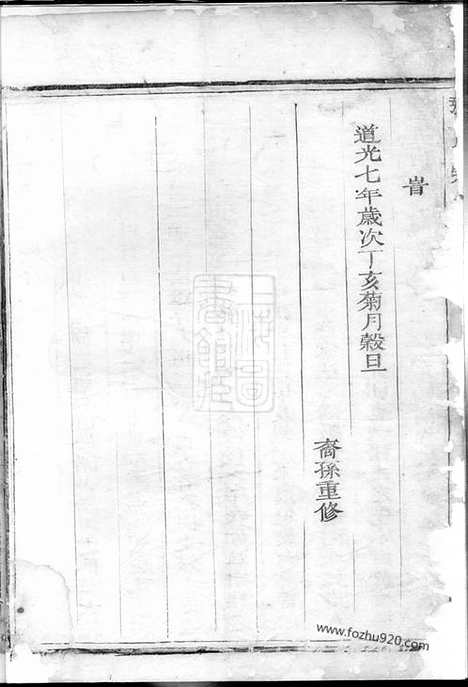 旹
道光七年歲次丁亥菊月穀旦
裔孫重修
www.fozhu920.com